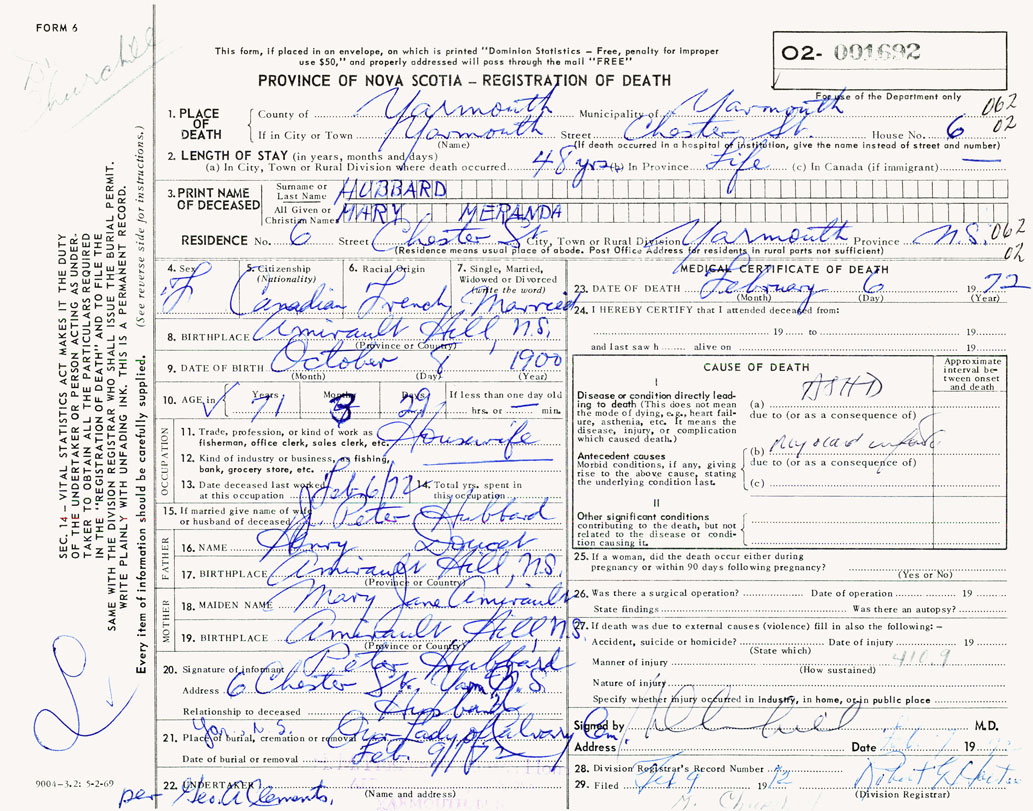 FORM 6
This form, if placed in an envelope, on which is printed "Dominion Statistics – Free, penalty for improper
use $50," and properly addressed will pass through the mail "FREE"
PROVINCE OF NOVA SCOTIA – REGISTRATION OF DEATH
O2- 001692
For use of the Department only
Churchill
SEC. 14 – VITAL STATISTICS ACT MAKES IT THE DUTY
OF THE UNDERTAKER OR PERSON ACTING AS UNDER-
TAKER TO OBTAIN ALL THE PARTICULARS REQUIRED
IN THE "REGISTRATION OF DEATH" AND TO FILE THE
SAME WITH THE DIVISION REGISTRAR WHO SHALL ISSUE THE BURIAL PERMIT.
WRITE PLAINLY WITH UNFADING INK. THIS IS A PERMANENT RECORD.
Every item of information should be carefully supplied. (See reverse side for instructions.)
1. PLACE OF DEATH County of Yarmouth Municipality of Yarmouth 062
If in City or Town Yarmouth Street Chester St. House No. 6 02
(Name) (If death occurred in a hospital or institution, give the name instead of street and number)
2. LENGTH OF STAY (in years, months and days)
(a) In City, Town or Rural Division where death occurred 48 yrs (b) In Province Life (c) In Canada (if immigrant) —
3. PRINT NAME OF DECEASED Surname or Last Name HUBBARD
All Given or Christian Name MARY MERANDA
RESIDENCE No. 6 Street Chester St. City, Town or Rural Division Yarmouth Province N.S. 062
(Residence means usual place of abode. Post Office Address for residents in rural parts not sufficient) 02
4. Sex 5. Citizenship (Nationality) 6. Racial Origin 7. Single, Married, Widowed or Divorced (write the word)
F Canadian French Married
8. BIRTHPLACE Amirault Hill, N.S.
(Province or Country)
9. DATE OF BIRTH October 8 1900
(Month) (Day) (Year)
10. AGE in Years Months Days If less than one day old
71 3 29 hrs. or — min.
OCCUPATION
11. Trade, profession, or kind of work as
fisherman, office clerk, sales clerk, etc. Housewife
12. Kind of industry or business, as fishing,
bank, grocery store, etc.
13. Date deceased last worked at this occupation Feb 6/72 14. Total yrs. spent in this occupation
15. If married give name of wife
or husband of deceased J. Peter Hubbard
FATHER
16. NAME Henry Doucet
17. BIRTHPLACE Amirault Hill, N.S.
(Province or Country)
MOTHER
18. MAIDEN NAME Mary Jane Amirault
19. BIRTHPLACE Amirault Hill, N.S.
(Province or Country)
20. Signature of informant Peter Hubbard
Address 6 Chester St., Yar. N.S.
Relationship to deceased Husband
Yar. N.S.
21. Place of burial, cremation or removal Our Lady of Calvary Cem.
Date of burial or removal Feb. 9/72
22. UNDERTAKER
(Name and address)
per Geo. A Clements.
9004-3.2: 5-2-69
MEDICAL CERTIFICATE OF DEATH
23. DATE OF DEATH February 6 1972
(Month) (Day) (Year)
24. I HEREBY CERTIFY that I attended deceased from:
19 to 19
and last saw h alive on 19
CAUSE OF DEATH
Approximate interval between onset and death
I
Disease or condition directly lead-
ing to death (This does not mean
the mode of dying, e.g., heart fail-
ure, asthenia, etc. It means the
disease, injury, or complication
which caused death.)
(a) ASHD
due to (or as a consequence of)
Antecedent causes
Morbid conditions, if any, giving
rise to the above cause, stating
the underlying condition last.
(b)
due to (or as a consequence of)
(c)
II
Other significant conditions
contributing to the death, but not
related to the disease or condi-
tion causing it.
25. If a woman, did the death occur either during
pregnancy or within 90 days following pregnancy?
(Yes or No)
26. Was there a surgical operation? Date of operation 19
State findings Was there an autopsy?
27. If death was due to external causes (violence) fill in also the following: –
Accident, suicide or homicide? Date of injury 19
(State which)
Manner of injury 410.9
(How sustained)
Nature of injury
Specify whether injury occurred in industry, in home, or in public place
Signed by M.D.
Address Date 19
28. Division Registrar's Record Number
29. Filed Feb 9 1972
(Division Registrar)